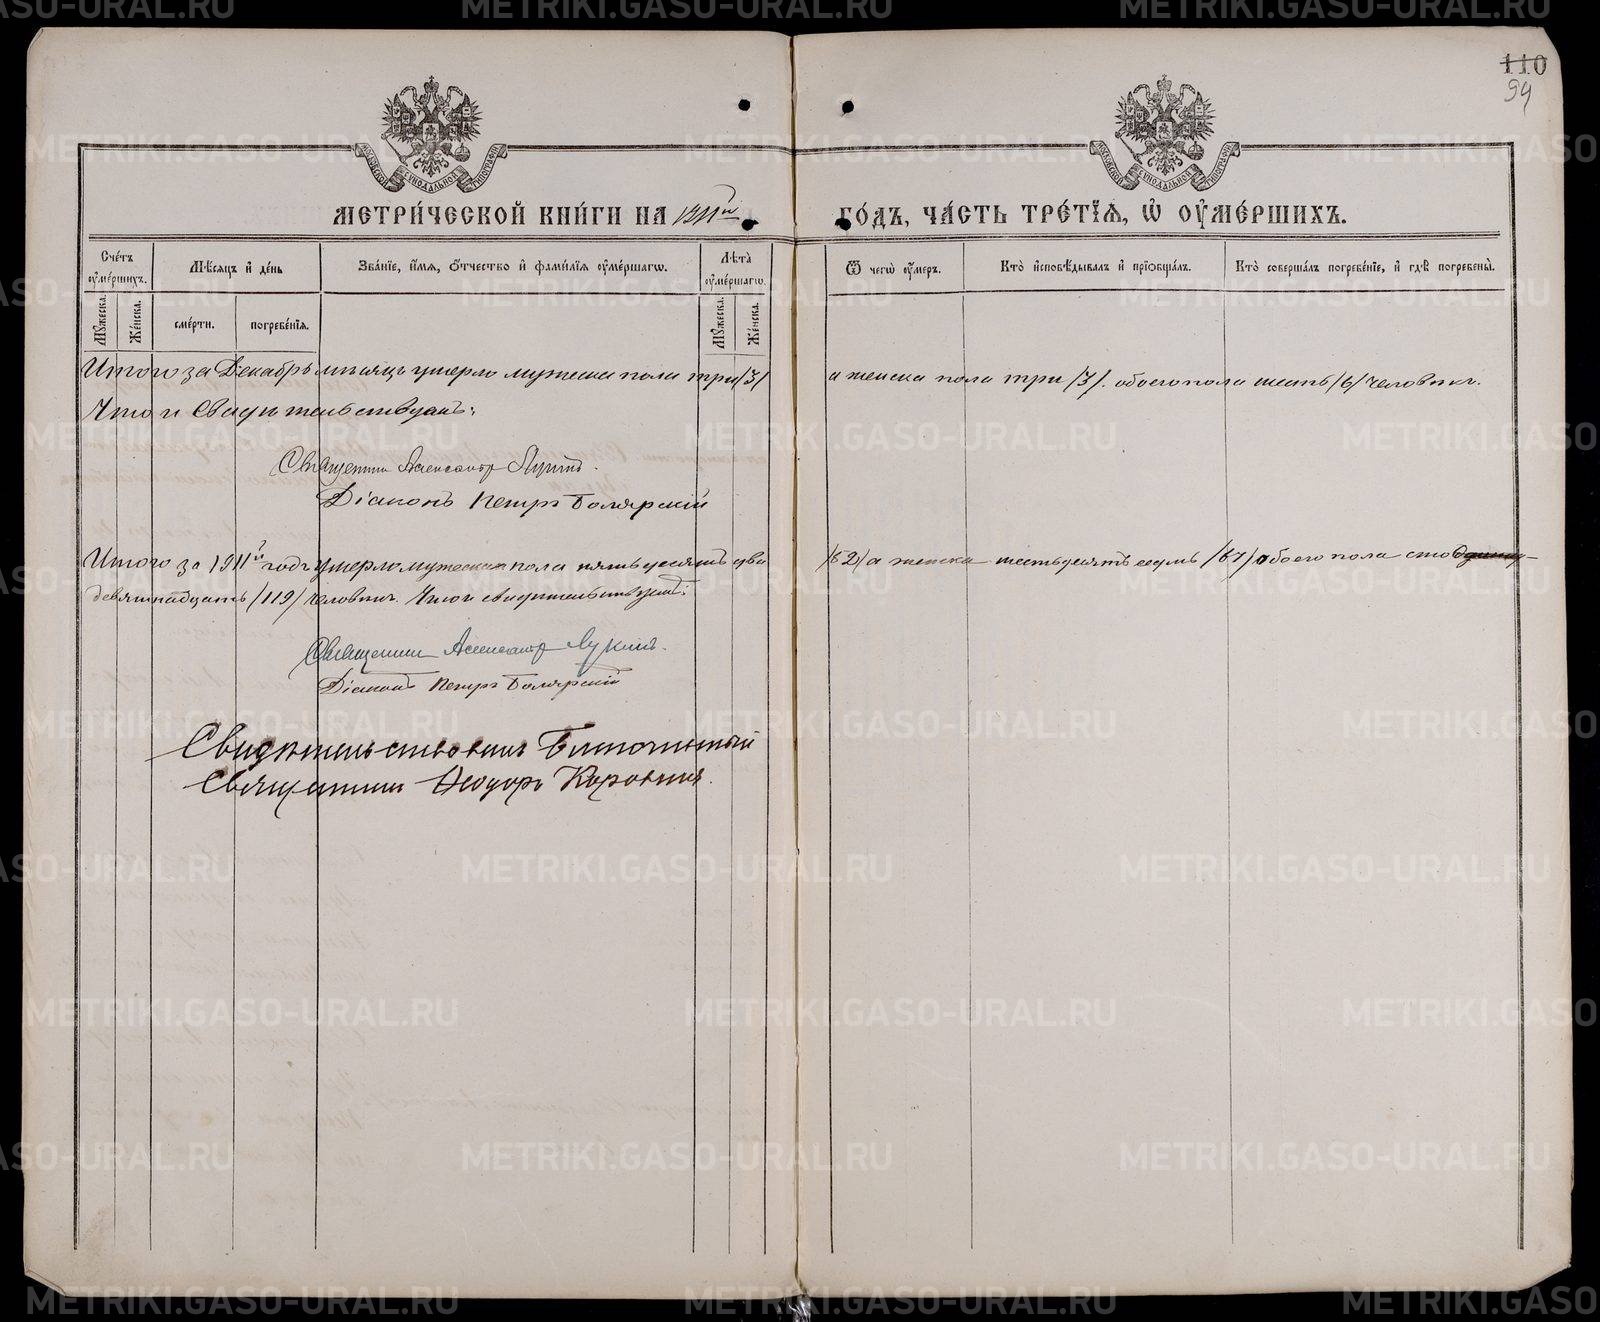 110
94
МЕТРИ́ЧЕСКОЙ КНИ́ГИ НА 1911й
ГО́ДЪ, ЧА́СТЬ ТРЕ́ТІѦ, Ѽ ОУ҆МЕ́РШИХЪ.
Сче́тъ оу҆ме́ршихъ.
Мѣ́сяцъ и҆ де́нь
Зва́нїе, и҆́мя, ѻ҆́тчество и҆ фами́лїя оу҆ме́ршагѡ.
Лѣ́та оу҆ме́ршагѡ.
Ѿ чегѡ̀ оу҆́меръ.
Кто̀ и҆сповѣ́дывалъ и҆ прїѻбща́лъ.
Кто̀ соверша́лъ погребе́нїе, и҆ гдѣ̀ погребены̀.
Мꙋ́жеска.
Же́нска.
сме́рти.
погребе́нїя.
Мꙋ́жеска.
Же́нска.
Итого за Декабрь мѣсяцъ умерло мужеска пола три /3/ а женска пола три /3/. обоего пола шесть /6/ человѣкъ.
Что и свидѣтельствуемъ:
Священникъ Александръ Лукинъ.
Діаконъ Петръ Болярскій
Итого за 1911й годъ умерло мужеска пола пятьдесятъ два /52/ а женска шестьдесятъ семь /67/ обоего пола сто
девятнадцать /119/ человѣкъ. Что и свидѣтельствуемъ:
Священникъ Александръ Лукинъ.
Діаконъ Петръ Болярскій
Свидѣтельствовалъ Благочинный
Священникъ Ѳеодоръ Коровинъ.
METRIKI.GASO-URAL.RU